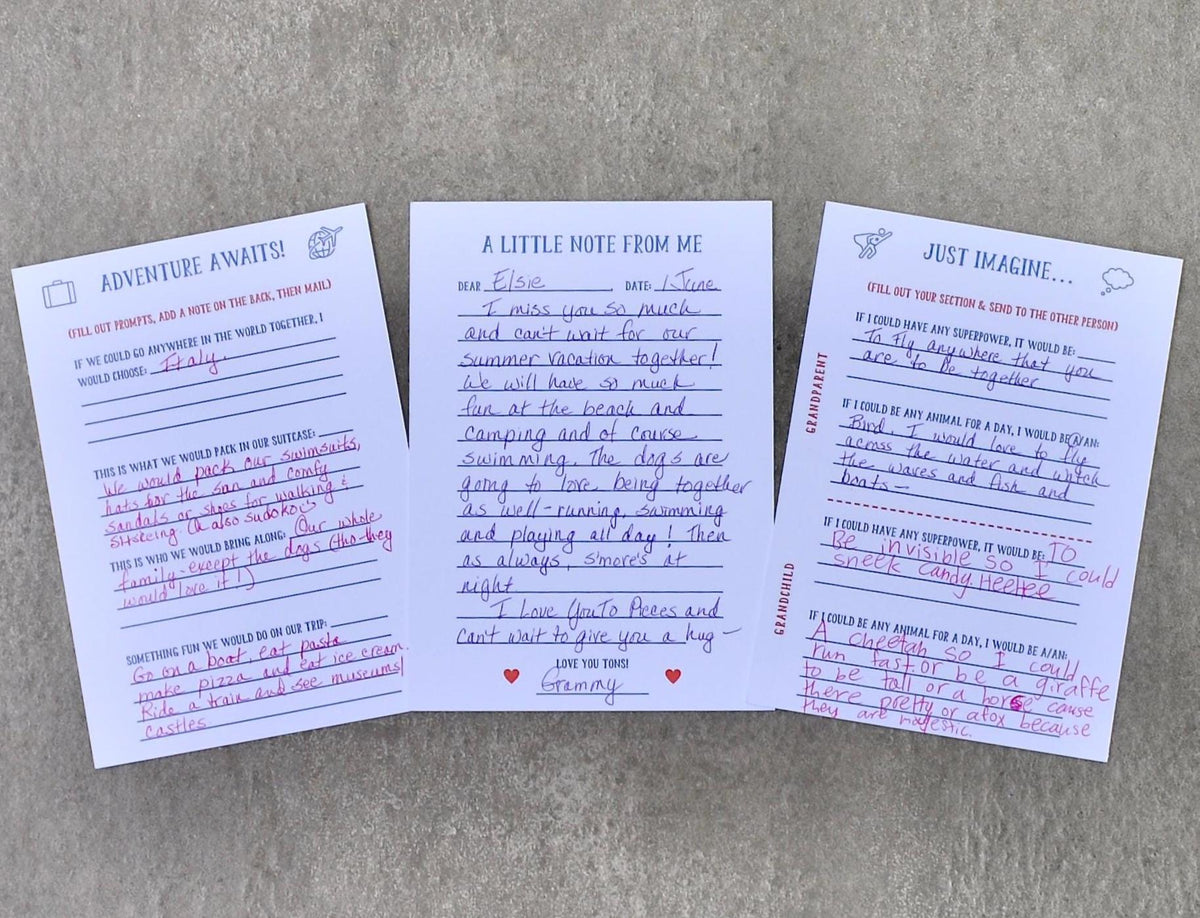 ADVENTURE AWAITS!
(FILL OUT PROMPTS, ADD A NOTE ON THE BACK, THEN MAIL)
IF WE COULD GO ANYWHERE IN THE WORLD TOGETHER, I
WOULD CHOOSE: Italy.
THIS IS WHAT WE WOULD PACK IN OUR SUITCASE:
We would pack our swimsuits,
hats for the sun and comfy
sandals or shoes for walking &
sitseeing (& also sudoko)
THIS IS WHO WE WOULD BRING ALONG: Our whole
family except the dogs (tho-they
would love it!)
SOMETHING FUN WE WOULD DO ON OUR TRIP:
Go on a boat, eat pasta
make pizza and eat ice cream.
Ride a train and see museums/
castles
A LITTLE NOTE FROM ME
DEAR Elsie DATE: 1 June
I miss you so much
and can't wait for our
summer vacation together!
We will have so much
fun at the beach and
camping and of course
swimming. The dogs are
going to love being together
as well-running, swimming
and playing all day! Then
as always, s'more's at
night
I Love You To Pieces and
Can't wait to give you a hug-
LOVE YOU TONS!
Grammy
JUST IMAGINE...
(FILL OUT YOUR SECTION & SEND TO THE OTHER PERSON)
GRANDPARENT
IF I COULD HAVE ANY SUPERPOWER, IT WOULD BE:
To fly anywhere that you
are to be together
IF I COULD BE ANY ANIMAL FOR A DAY, I WOULD BE A/AN:
Bird. I would love to fly
across the water and watch
the waves and fish and
boats-
GRANDCHILD
IF I COULD HAVE ANY SUPERPOWER, IT WOULD BE: TO
Be invisible so I could
sneek candy. Heehee
IF I COULD BE ANY ANIMAL FOR A DAY, I WOULD BE A/AN:
A cheetah so I could
run fast. or be a giraffe
to be tall or a horse cause
there pretty or a fox because
they are majestic.